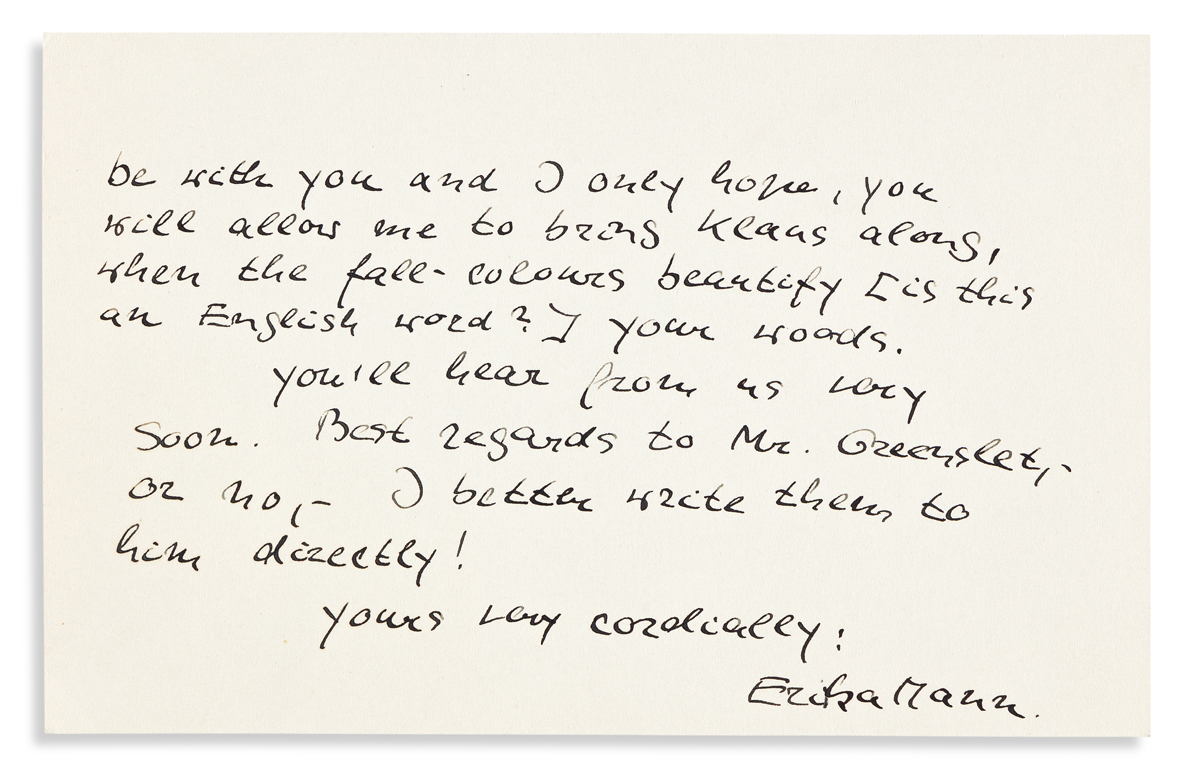 be with you and I only hope, you
will allow me to bring Klaus along,
when the fall-colours beautify [is this
an English word?] your woods.
you'll hear from us very
soon. Best regards to Mr. Greenslet,-
or no,- I better write them to
him directly!
yours very cordially:
Erika Mann.